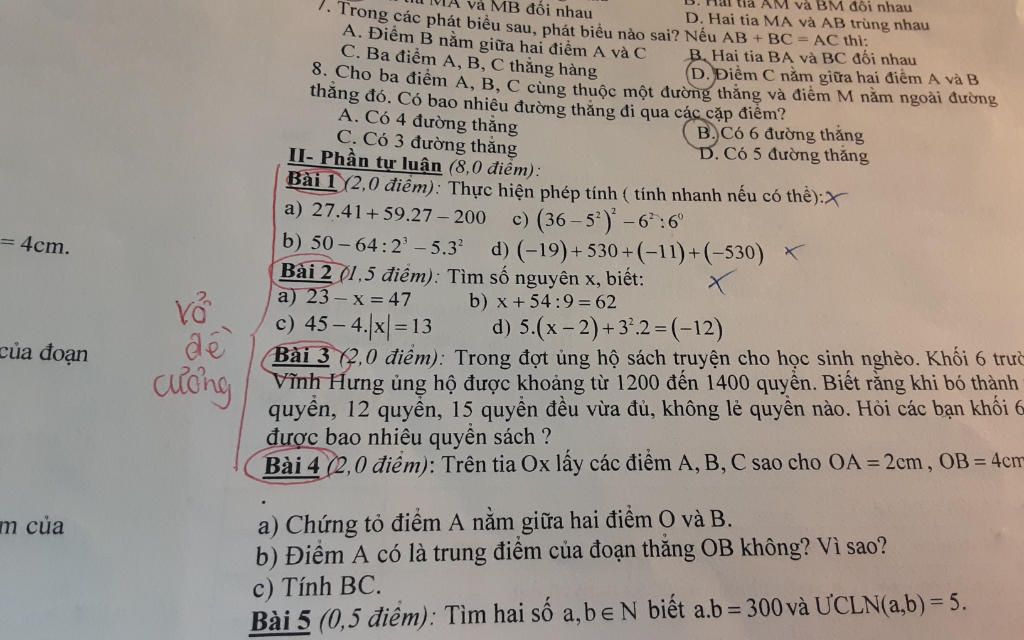 MA và MB đối nhau
B. Hai tia AM và BM đối nhau
D. Hai tia MA và AB trùng nhau
7. Trong các phát biểu sau, phát biểu nào sai? Nếu AB + BC = AC thì:
A. Điểm B nằm giữa hai điểm A và C B. Hai tia BA và BC đối nhau
C. Ba điểm A, B, C thẳng hàng D. Điểm C nằm giữa hai điểm A và B
8. Cho ba điểm A, B, C cùng thuộc một đường thẳng và điểm M nằm ngoài đường
thẳng đó. Có bao nhiêu đường thẳng đi qua các cặp điểm?
A. Có 4 đường thẳng B. Có 6 đường thẳng
C. Có 3 đường thẳng D. Có 5 đường thẳng
II- Phần tự luận (8,0 điểm):
Bài 1 (2,0 điểm): Thực hiện phép tính ( tính nhanh nếu có thể):
a) 27.41 + 59.27 − 200 c) (36 − 5²)² − 6² : 6⁰
b) 50 − 64 : 2³ − 5.3² d) (−19) + 530 + (−11) + (−530)
= 4cm.
Bài 2 (1,5 điểm): Tìm số nguyên x, biết:
a) 23 − x = 47 b) x + 54 : 9 = 62
c) 45 − 4.|x| = 13 d) 5.(x − 2) + 3².2 = (−12)
vở
đề
cương
của đoạn
Bài 3 (2,0 điểm): Trong đợt ủng hộ sách truyện cho học sinh nghèo. Khối 6
Vĩnh Hưng ủng hộ được khoảng từ 1200 đến 1400 quyển. Biết rằng khi bó thành
quyển, 12 quyển, 15 quyển đều vừa đủ, không lẻ quyển nào. Hỏi các bạn khối 6
được bao nhiêu quyển sách ?
Bài 4 (2,0 điểm): Trên tia Ox lấy các điểm A, B, C sao cho OA = 2cm , OB = 4cm
.
m của
a) Chứng tỏ điểm A nằm giữa hai điểm O và B.
b) Điểm A có là trung điểm của đoạn thẳng OB không? Vì sao?
c) Tính BC.
Bài 5 (0,5 điểm): Tìm hai số a, b ∈ N biết a.b = 300 và ƯCLN(a,b) = 5.